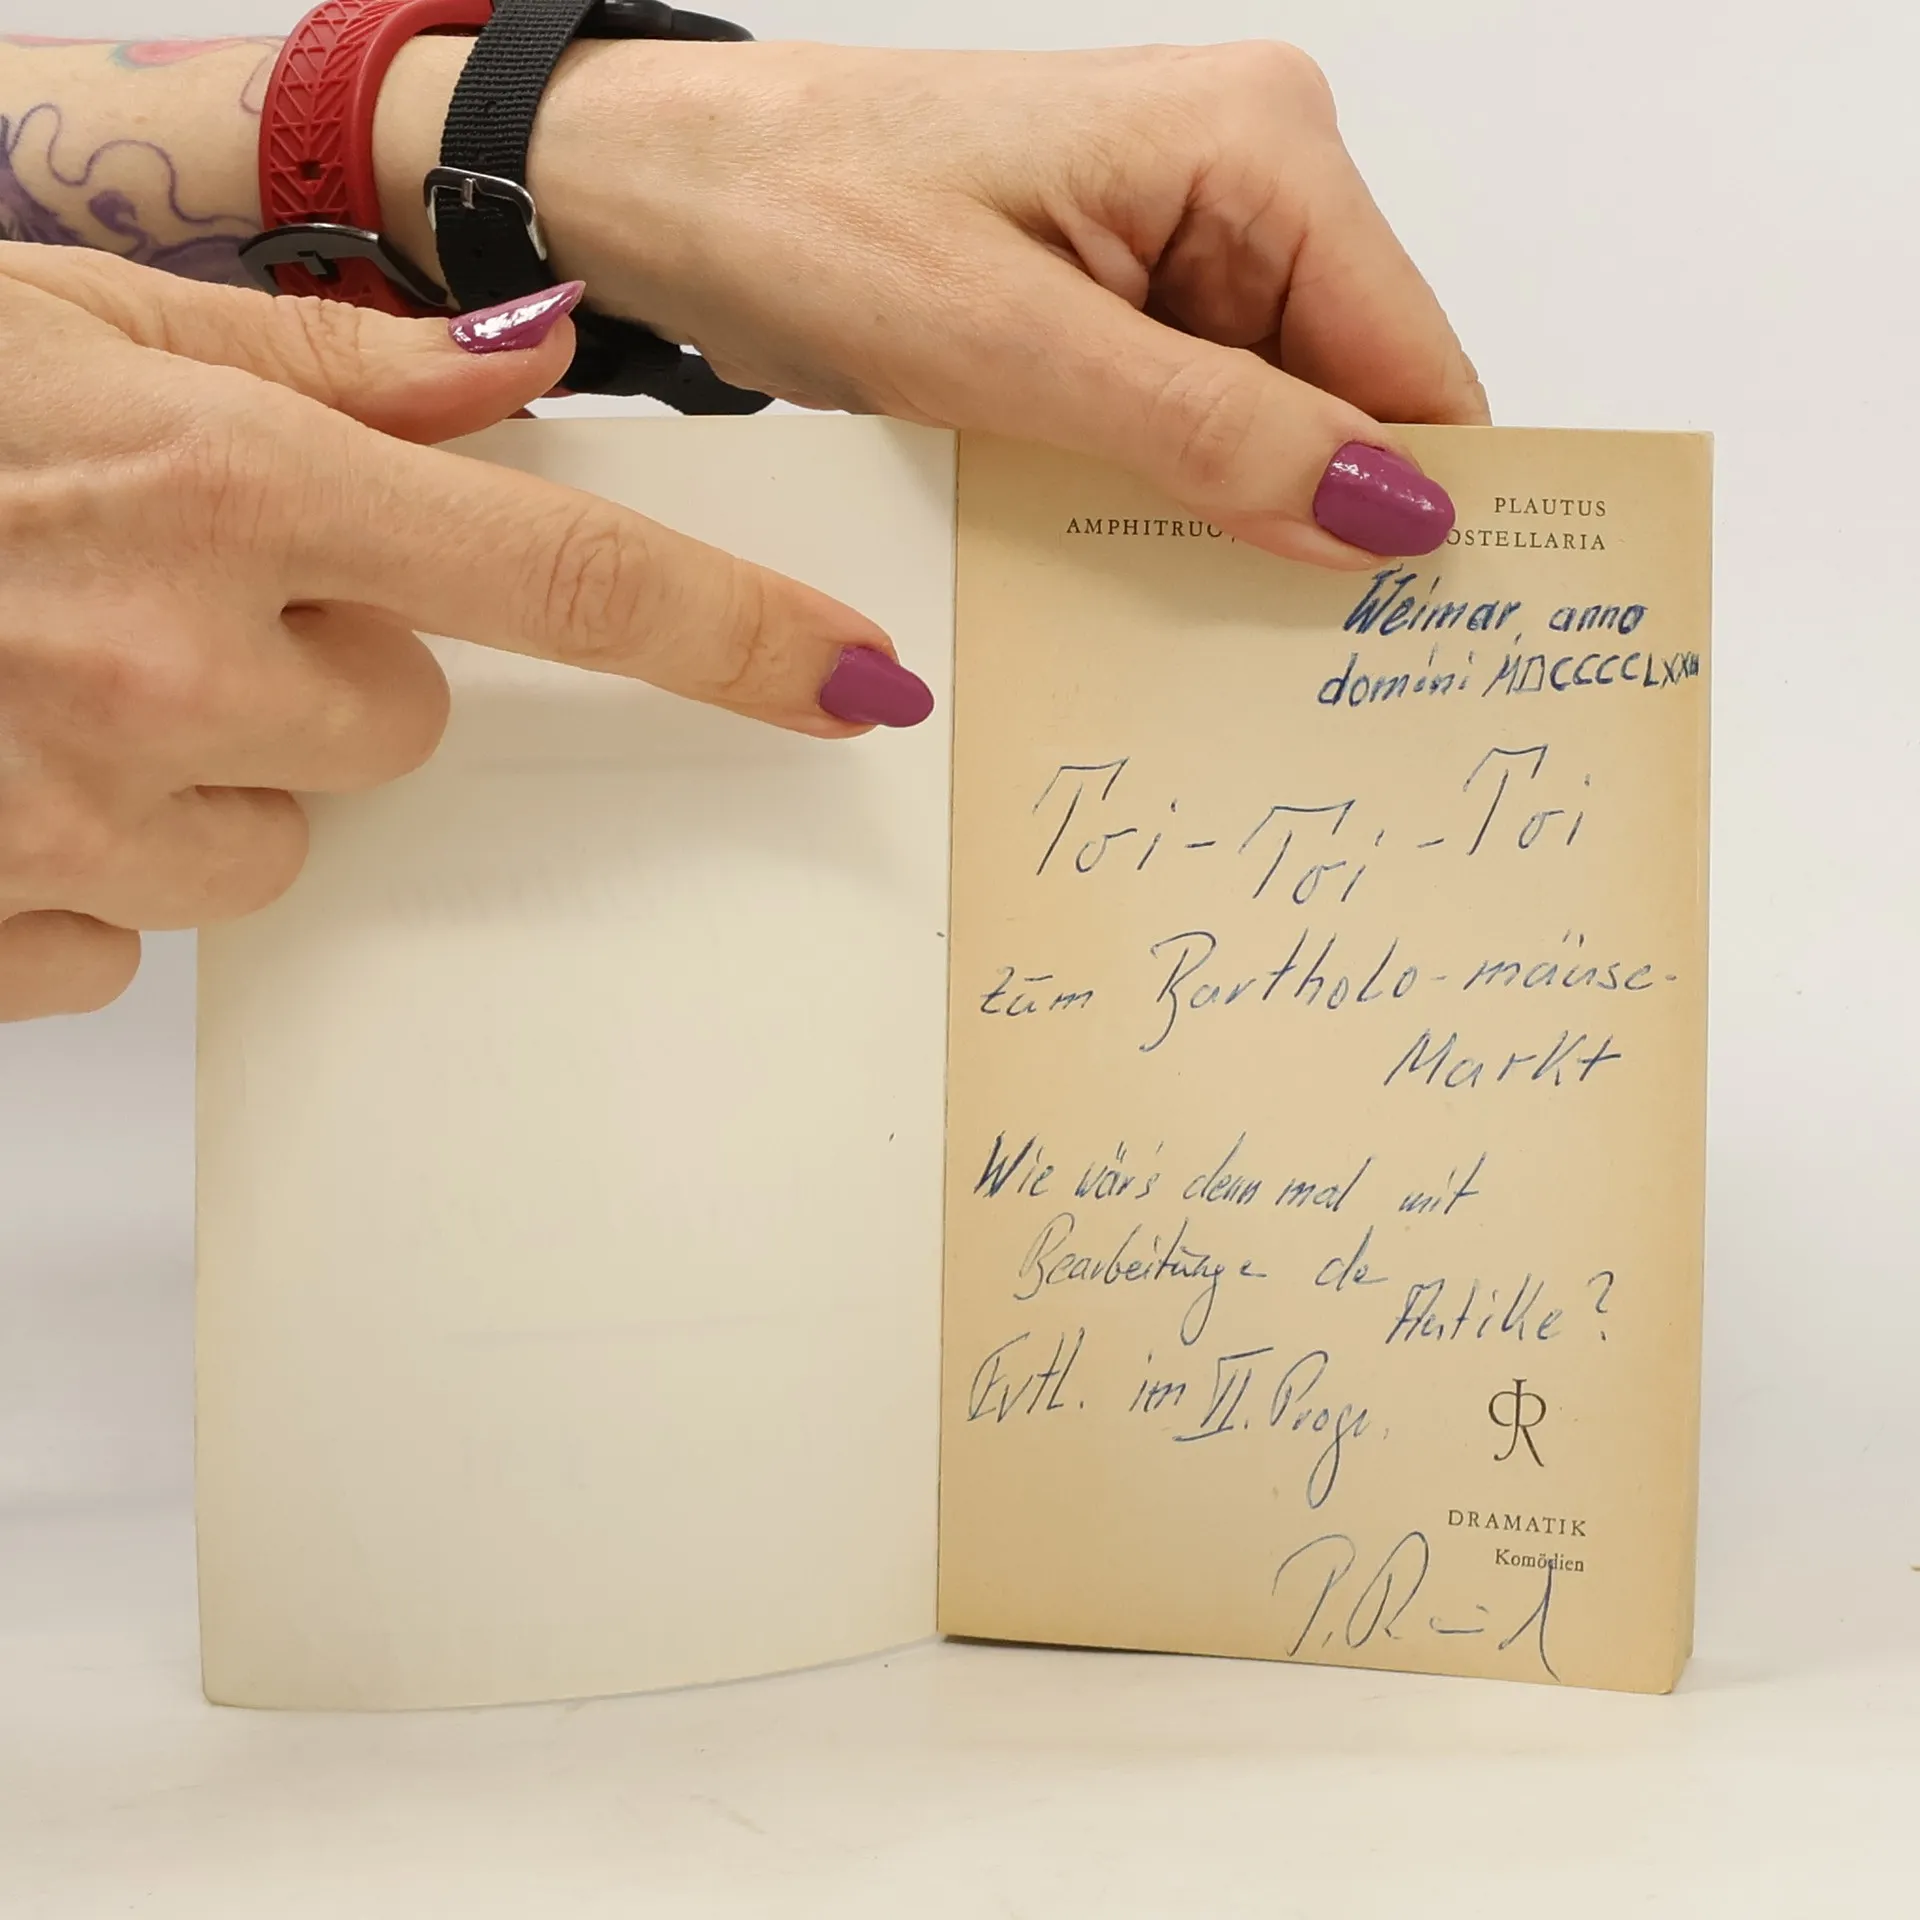 PLAUTUS
AMPHITRUO OSTELLARIA
Weimar, anno
domini MDCCCCLXXII
Toi - Toi - Toi
zum Bartholo-mäuse-
Markt
Wie wär's denn mal mit
Bearbeitunge de
Antike?
Evtl. im VI. Progr.
DRAMATIK
Komödien
P. R